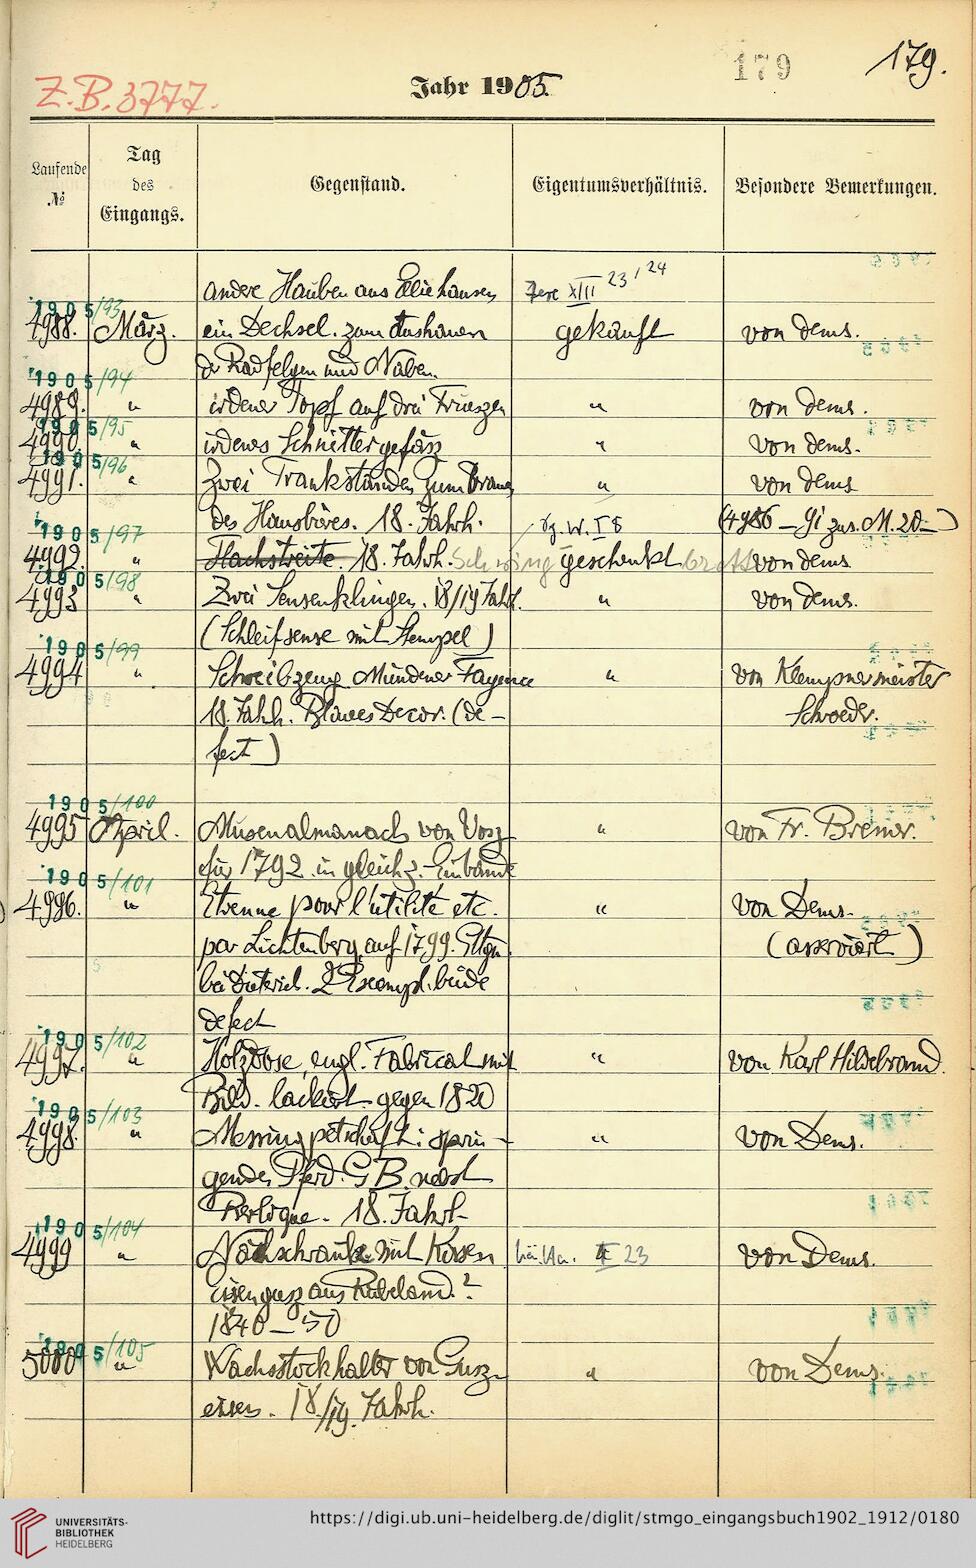 Z.B. 3777.
Jahr 1905.
179
179.
Laufende
№
Tag
des
Eingangs.
Gegenstand.
Eigentumsverhältnis.
Besondere Bemerkungen.
andere Hauben aus XIII 23/24
1905/93
4988. März. ein Dechsel. zum Aushauen gekauft von dems.
der Radfelgen und Naben.
1905/94
4989. " irdener Topf auf drei Füeszen " von dems.
1905/95
4990. " irdenes Schnittergefäsz " von dems.
1905/96
4991. " Zwei Trankständen zum " von dems
des Hausbieres. 18. Jahrh. (4986 – 91 zus. M. 20 –)
1905/97
4992. " 18. Jahrh. Schwing geschenkt brett von dems
1905/98
4993 " Zwei Sensenklingen. 18/19 Jahrh. " von dems.
(Schleifsense mit Stempel)
1905/99
4994 " Schreibzeug Mündener Fayence " von Klempnermeister
18. Jahrh. Blaues Decor. (de- Schroeder.
fect)
1905/100
4995 April. Musenalmanach von Vosz " von Fr. Bremer.
für 1792 in gleichz. Einbande
1905/101
4996. " Etrenne pour l'utilité etc. " von Dems.
par Lichtenberg auf 1799. Gttgn. (asserviert)
bei Dieterich. 2 Exempl. beide
defect
1905/102
4997. " Holzdose, engl. Fabricat mit " von Karl Hildebrand.
Bild. lackiert. gegen 1820
1905/103
4998. " Messingpetschaft: sprin- " von Dems.
gendes Pferd. G B. nebst
Berloque. 18. Jahrh.
1905/104
4999 " mit Kissen II 23 von Dems.
Eisengusz aus Rübeland?
1840–50
1905/105
5000 " Wachsstockhalter von Gusz- " von Dems.
eisen. 18./19. Jahrh.
UNIVERSITÄTS-
BIBLIOTHEK
HEIDELBERG
https://digi.ub.uni-heidelberg.de/diglit/stmgo_eingangsbuch1902_1912/0180